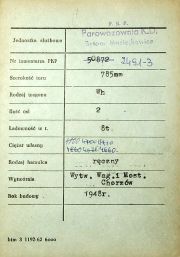 P. K. P.
Jednostka służbowa
Parowozownia K.D.
Nr inwentarza PKP 50872 2491-3
Szerokość toru 785mm
Rodzaj wagonu Wh
Ilość osi 2
Ładowność w t. 8t.
Ciężar własny
Rodzaj hamulca ręczny
Wytwórnia Wytw. Wag. i Most.
Chorzów
Rok budowy 1948r.